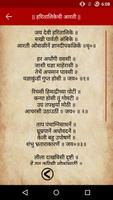 6:09
|| हरितालिकेची आरती ||
जय देवी हरितालिके
सखी पार्वती अंबिके
आरती ओवाळीतें ज्ञानदीपकळिके ॥धृ०॥
हर अर्धांगी वससी
जाससी यज्ञा माहेरासी
तेथें अपमान पावसी
यज्ञकुंडीं गुप्त होसी
जय देवी हरितालिके
रिघसी हिमाद्रीच्या पोटी
कन्या होसी तू गोमटी
उग्र तपश्चर्या मोठी
आचरसी उठाउठी
जय देवी हरितालिके
ताप पंचाग्निसाधनें
धूम्रपानें अधोवदनें
केली बहु उपोषणें
शंभु भ्रताराकारणें ॥जय०॥
लीला दाखविसी दृष्टी